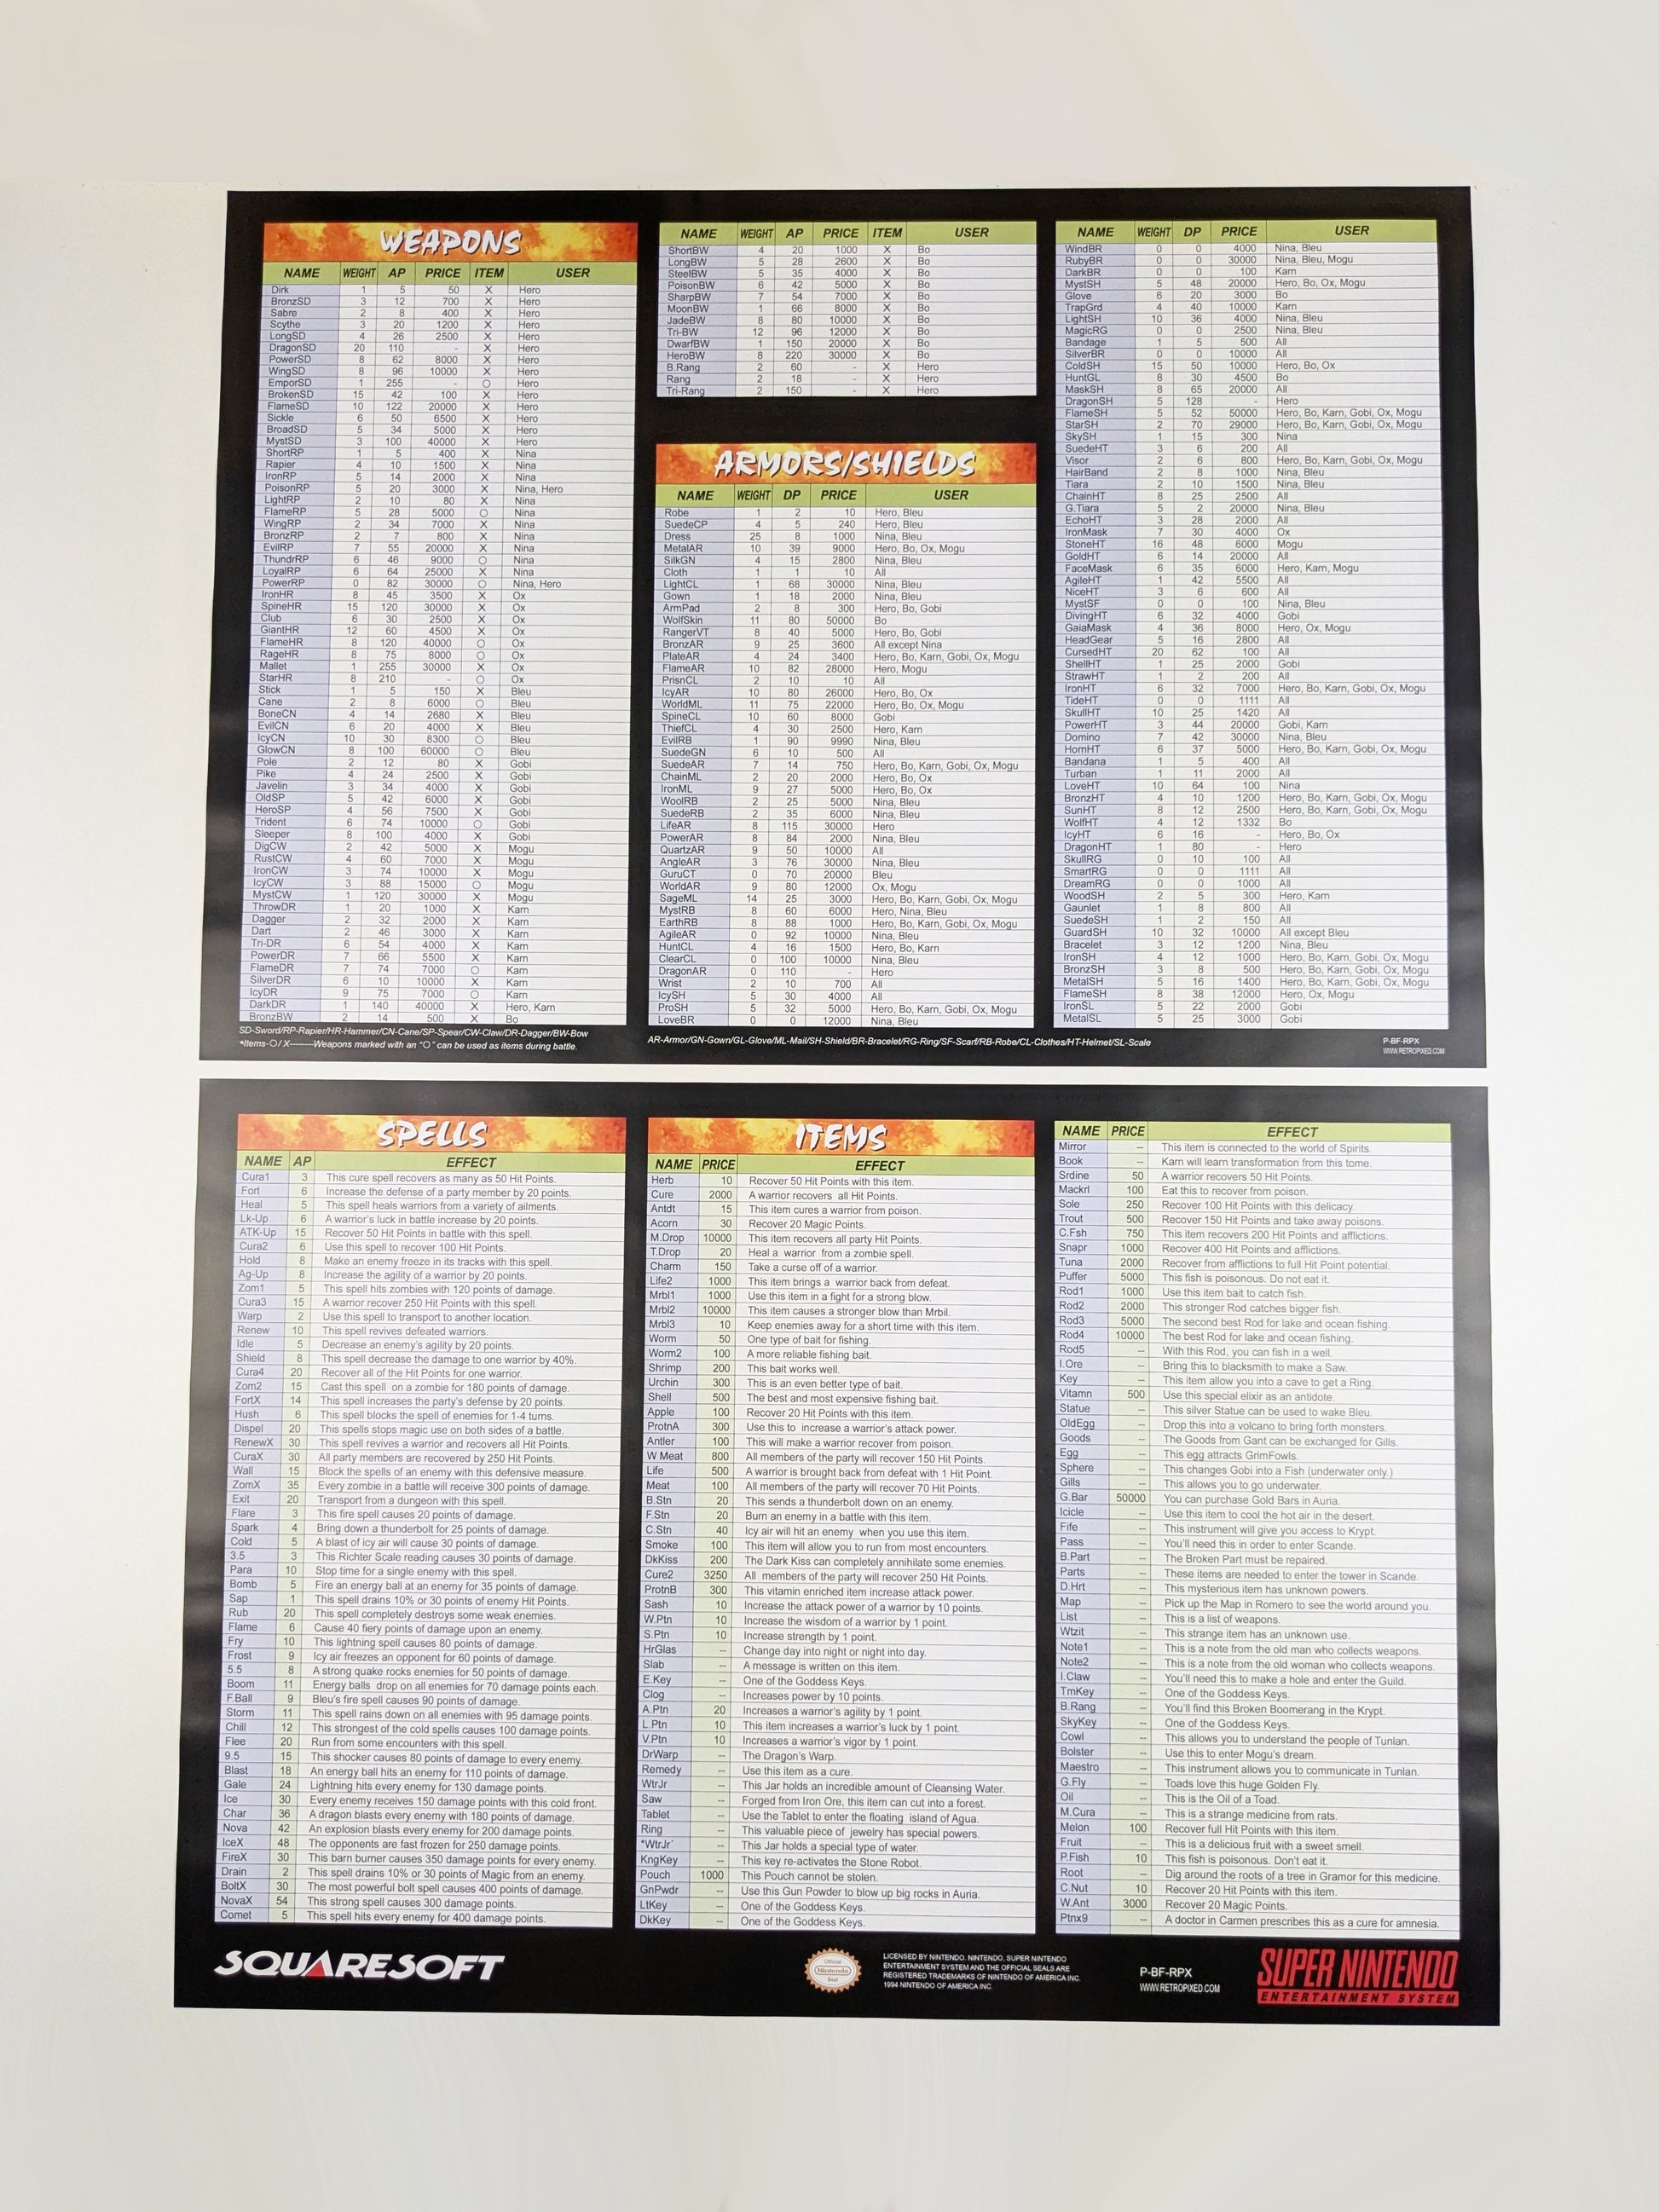 WEAPONS
NAME WEIGHT AP PRICE ITEM USER
Dirk 1 5 50 X Hero
BronzSD 3 12 700 X Hero
Sabre 2 8 400 X Hero
Scythe 3 20 1200 X Hero
LongSD 4 26 2500 X Hero
DragonSD 20 110 - X Hero
PowerSD 8 62 8000 X Hero
WingSD 8 96 10000 X Hero
EmporSD 1 255 - O Hero
BrokenSD 15 42 100 X Hero
FlameSD 10 122 20000 X Hero
Sickle 6 50 6500 X Hero
BroadSD 5 34 5000 X Hero
MystSD 3 100 40000 X Hero
ShortRP 1 5 400 X Nina
Rapier 4 10 1500 X Nina
IronRP 5 14 2000 X Nina
PoisonRP 5 20 3000 X Nina, Hero
LightRP 2 10 80 X Nina
FlameRP 5 28 5000 O Nina
WingRP 2 34 7000 X Nina
BronzRP 2 7 800 X Nina
EvilRP 7 55 20000 X Nina
ThundrRP 6 46 9000 O Nina
LoyalRP 6 64 25000 X Nina
PowerRP 0 82 30000 O Nina, Hero
IronHR 8 45 3500 X Ox
SpineHR 15 120 30000 X Ox
Club 6 30 2500 X Ox
GiantHR 12 60 4500 X Ox
FlameHR 8 120 40000 O Ox
RageHR 8 75 8000 O Ox
Mallet 1 255 30000 X Ox
StarHR 8 210 - O Ox
Stick 1 5 150 X Bleu
Cane 2 8 6000 O Bleu
BoneCN 4 14 2680 X Bleu
EvilCN 6 20 4000 X Bleu
IcyCN 10 30 8300 O Bleu
GlowCN 8 100 60000 O Bleu
Pole 2 12 80 X Gobi
Pike 4 24 2500 X Gobi
Javelin 3 34 4000 X Gobi
OldSP 5 42 6000 X Gobi
HeroSP 4 56 7500 X Gobi
Trident 6 74 10000 O Gobi
Sleeper 8 100 4000 X Gobi
DigCW 2 42 5000 X Mogu
RustCW 4 60 7000 X Mogu
IronCW 3 74 10000 X Mogu
IcyCW 3 88 15000 O Mogu
MystCW 1 120 30000 X Mogu
ThrowDR 1 20 1000 X Karn
Dagger 2 32 2000 X Karn
Dart 2 46 3000 X Karn
Tri-DR 6 54 4000 X Karn
PowerDR 7 66 5500 X Karn
FlameDR 7 74 7000 O Karn
SilverDR 6 10 10000 X Karn
IcyDR 9 75 7000 O Karn
DarkDR 1 140 40000 X Hero, Karn
BronzBW 2 14 500 X Bo
SD-Sword/RP-Rapier/HR-Hammer/CN-Cane/SP-Spear/CW-Claw/DR-Dagger/BW-Bow
*Items-O/ X--------Weapons marked with an "O" can be used as items during battle.
NAME WEIGHT AP PRICE ITEM USER
ShortBW 4 20 1000 X Bo
LongBW 5 28 2600 X Bo
SteelBW 5 35 4000 X Bo
PoisonBW 6 42 5000 X Bo
SharpBW 7 54 7000 X Bo
MoonBW 1 66 8000 X Bo
JadeBW 8 80 10000 X Bo
Tri-BW 12 96 12000 X Bo
DwarfBW 1 150 20000 X Bo
HeroBW 8 220 30000 X Bo
B.Rang 2 60 - X Hero
Rang 2 18 - X Hero
Tri-Rang 2 150 - X Hero
ARMORS/SHIELDS
NAME WEIGHT DP PRICE USER
Robe 1 2 10 Hero, Bleu
SuedeCP 4 5 240 Hero, Bleu
Dress 25 8 1000 Nina, Bleu
MetalAR 10 39 9000 Hero, Bo, Ox, Mogu
SilkGN 4 15 2800 Nina, Bleu
Cloth 1 1 10 All
LightCL 1 68 30000 Nina, Bleu
Gown 1 18 2000 Nina, Bleu
ArmPad 2 8 300 Hero, Bo, Gobi
WolfSkin 11 80 50000 Bo
RangerVT 8 40 5000 Hero, Bo, Gobi
BronzAR 9 25 3600 All except Nina
PlateAR 4 24 3400 Hero, Bo, Karn, Gobi, Ox, Mogu
FlameAR 10 82 28000 Hero, Mogu
PrisnCL 2 10 10 All
IcyAR 10 80 26000 Hero, Bo, Ox
WorldML 11 75 22000 Hero, Bo, Ox, Mogu
SpineCL 10 60 8000 Gobi
ThiefCL 4 30 2500 Hero, Karn
EvilRB 1 90 9990 Nina, Bleu
SuedeGN 6 10 500 All
SuedeAR 7 14 750 Hero, Bo, Karn, Gobi, Ox, Mogu
ChainML 2 20 2000 Hero, Bo, Ox
IronML 9 27 5000 Hero, Bo, Ox
WoolRB 2 25 5000 Nina, Bleu
SuedeRB 2 35 6000 Nina, Bleu
LifeAR 8 115 30000 Hero
PowerAR 8 84 2000 Nina, Bleu
QuartzAR 9 50 10000 All
AngleAR 3 76 30000 Nina, Bleu
GuruCT 0 70 20000 Bleu
WorldAR 9 80 12000 Ox, Mogu
SageML 14 25 3000 Hero, Bo, Karn, Gobi, Ox, Mogu
MystRB 8 60 6000 Hero, Nina, Bleu
EarthRB 8 88 1000 Hero, Bo, Karn, Gobi, Ox, Mogu
AgileAR 0 92 10000 Nina, Bleu
HuntCL 4 16 1500 Hero, Bo, Karn
ClearCL 0 100 10000 Nina, Bleu
DragonAR 0 110 - Hero
Wrist 2 10 700 All
IcySH 5 30 4000 All
ProSH 5 32 5000 Hero, Bo, Karn, Gobi, Ox, Mogu
LoveBR 0 0 12000 Nina, Bleu
AR-Armor/GN-Gown/GL-Glove/ML-Mail/SH-Shield/BR-Bracelet/RG-Ring/SF-Scarf/RB-Robe/CL-Clothes/HT-Helmet/SL-Scale
NAME WEIGHT DP PRICE USER
WindBR 0 0 4000 Nina, Bleu
RubyBR 0 0 30000 Nina, Bleu, Mogu
DarkBR 0 0 100 Karn
MystSH 5 48 20000 Hero, Bo, Ox, Mogu
Glove 6 20 3000 Bo
TrapGrd 4 40 10000 Karn
LightSH 10 36 4000 Nina, Bleu
MagicRG 0 0 2500 Nina, Bleu
Bandage 1 5 500 All
SilverBR 0 0 10000 All
ColdSH 15 50 10000 Hero, Bo, Ox
HuntGL 8 30 4500 Bo
MaskSH 8 65 20000 All
DragonSH 5 128 - Hero
FlameSH 5 52 50000 Hero, Bo, Karn, Gobi, Ox, Mogu
StarSH 2 70 29000 Hero, Bo, Karn, Gobi, Ox, Mogu
SkySH 1 15 300 Nina
SuedeHT 3 6 200 All
Visor 2 6 800 Hero, Bo, Karn, Gobi, Ox, Mogu
HairBand 2 8 1000 Nina, Bleu
Tiara 2 10 1500 Nina, Bleu
ChainHT 8 25 2500 All
G.Tiara 5 2 20000 Nina, Bleu
EchoHT 3 28 2000 All
IronMask 7 30 4000 Ox
StoneHT 16 48 6000 Mogu
GoldHT 6 14 20000 All
FaceMask 6 35 6000 Hero, Karn, Mogu
AgileHT 1 42 5500 All
NiceHT 3 6 600 All
MystSF 0 0 100 Nina, Bleu
DivingHT 6 32 4000 Gobi
GaiaMask 4 36 8000 Hero, Ox, Mogu
HeadGear 5 16 2800 All
CursedHT 20 62 100 All
ShellHT 1 25 2000 Gobi
StrawHT 1 2 200 All
IronHT 6 32 7000 Hero, Bo, Karn, Gobi, Ox, Mogu
TideHT 0 0 1111 All
SkullHT 10 25 1420 All
PowerHT 3 44 20000 Gobi, Karn
Domino 7 42 30000 Nina, Bleu
HornHT 6 37 5000 Hero, Bo, Karn, Gobi, Ox, Mogu
Bandana 1 5 400 All
Turban 1 11 2000 All
LoveHT 10 64 100 Nina
BronzHT 4 10 1200 Hero, Bo, Karn, Gobi, Ox, Mogu
SunHT 8 12 2500 Hero, Bo, Karn, Gobi, Ox, Mogu
WolfHT 4 12 1332 Bo
IcyHT 6 16 - Hero, Bo, Ox
DragonHT 1 80 - Hero
SkullRG 0 10 100 All
SmartRG 0 0 1111 All
DreamRG 0 0 1000 All
WoodSH 2 5 300 Hero, Karn
Gaunlet 1 8 800 All
SuedeSH 1 2 150 All
GuardSH 10 32 10000 All except Bleu
Bracelet 3 12 1200 Nina, Bleu
IronSH 4 12 1000 Hero, Bo, Karn, Gobi, Ox, Mogu
BronzSH 3 8 500 Hero, Bo, Karn, Gobi, Ox, Mogu
MetalSH 5 16 1400 Hero, Bo, Karn, Gobi, Ox, Mogu
FlameSH 8 38 12000 Hero, Ox, Mogu
IronSL 5 22 2000 Gobi
MetalSL 5 25 3000 Gobi
P-BF-RPX
WWW.RETROPIXED.COM
SPELLS
NAME AP EFFECT
Cura1 3 This cure spell recovers as many as 50 Hit Points.
Fort 6 Increase the defense of a party member by 20 points.
Heal 5 This spell heals warriors from a variety of ailments.
Lk-Up 6 A warrior's luck in battle increase by 20 points.
ATK-Up 15 Recover 50 Hit Points in battle with this spell.
Cura2 6 Use this spell to recover 100 Hit Points.
Hold 8 Make an enemy freeze in its tracks with this spell.
Ag-Up 8 Increase the agility of a warrior by 20 points.
Zom1 5 This spell hits zombies with 120 points of damage.
Cura3 15 A warrior recover 250 Hit Points with this spell.
Warp 2 Use this spell to transport to another location.
Renew 10 This spell revives defeated warriors.
Idle 5 Decrease an enemy's agility by 20 points.
Shield 8 This spell decrease the damage to one warrior by 40%.
Cura4 20 Recover all of the Hit Points for one warrior.
Zom2 15 Cast this spell on a zombie for 180 points of damage.
FortX 14 This spell increases the party's defense by 20 points.
Hush 6 This spell blocks the spell of enemies for 1-4 turns.
Dispel 20 This spells stops magic use on both sides of a battle.
RenewX 30 This spell revives a warrior and recovers all Hit Points.
CuraX 30 All party members are recovered by 250 Hit Points.
Wall 15 Block the spells of an enemy with this defensive measure.
ZomX 35 Every zombie in a battle will receive 300 points of damage.
Exit 20 Transport from a dungeon with this spell.
Flare 3 This fire spell causes 20 points of damage.
Spark 4 Bring down a thunderbolt for 25 points of damage.
Cold 5 A blast of icy air will cause 30 points of damage.
3.5 3 This Richter Scale reading causes 30 points of damage.
Para 10 Stop time for a single enemy with this spell.
Bomb 5 Fire an energy ball at an enemy for 35 points of damage.
Sap 1 This spell drains 10% or 30 points of enemy Hit Points.
Rub 20 This spell completely destroys some weak enemies.
Flame 6 Cause 40 fiery points of damage upon an enemy.
Fry 10 This lightning spell causes 80 points of damage.
Frost 9 Icy air freezes an opponent for 60 points of damage.
5.5 8 A strong quake rocks enemies for 50 points of damage.
Boom 11 Energy balls drop on all enemies for 70 damage points each.
F.Ball 9 Bleu's fire spell causes 90 points of damage.
Storm 11 This spell rains down on all enemies with 95 damage points.
Chill 12 This strongest of the cold spells causes 100 damage points.
Flee 20 Run from some encounters with this spell.
9.5 15 This shocker causes 80 points of damage to every enemy.
Blast 18 An energy ball hits an enemy for 110 points of damage.
Gale 24 Lightning hits every enemy for 130 damage points.
Ice 30 Every enemy receives 150 damage points with this cold front.
Char 36 A dragon blasts every enemy with 180 points of damage.
Nova 42 An explosion blasts every enemy for 200 damage points.
IceX 48 The opponents are fast frozen for 250 damage points.
FireX 30 This barn burner causes 350 damage points for every enemy.
Drain 2 This spell drains 10% or 30 points of Magic from an enemy.
BoltX 30 The most powerful bolt spell causes 400 points of damage.
NovaX 54 This strong spell causes 300 damage points.
Comet 5 This spell hits every enemy for 400 damage points.
ITEMS
NAME PRICE EFFECT
Herb 10 Recover 50 Hit Points with this item.
Cure 2000 A warrior recovers all Hit Points.
Antdt 15 This item cures a warrior from poison.
Acorn 30 Recover 20 Magic Points.
M.Drop 10000 This item recovers all party Hit Points.
T.Drop 20 Heal a warrior from a zombie spell.
Charm 150 Take a curse off of a warrior.
Life2 1000 This item brings a warrior back from defeat.
Mrbl1 1000 Use this item in a fight for a strong blow.
Mrbl2 10000 This item causes a stronger blow than Mrbil.
Mrbl3 10 Keep enemies away for a short time with this item.
Worm 50 One type of bait for fishing.
Worm2 100 A more reliable fishing bait.
Shrimp 200 This bait works well.
Urchin 300 This is an even better type of bait.
Shell 500 The best and most expensive fishing bait.
Apple 100 Recover 20 Hit Points with this item.
ProtnA 300 Use this to increase a warrior's attack power.
Antler 100 This will make a warrior recover from poison.
W Meat 800 All members of the party will recover 150 Hit Points.
Life 500 A warrior is brought back from defeat with 1 Hit Point.
Meat 100 All members of the party will recover 70 Hit Points.
B.Stn 20 This sends a thunderbolt down on an enemy.
F.Stn 20 Burn an enemy in a battle with this item.
C.Stn 40 Icy air will hit an enemy when you use this item.
Smoke 100 This item will allow you to run from most encounters.
DkKiss 200 The Dark Kiss can completely annihilate some enemies.
Cure2 3250 All members of the party will recover 250 Hit Points.
ProtnB 300 This vitamin enriched item increase attack power.
Sash 10 Increase the attack power of a warrior by 10 points.
W.Ptn 10 Increase the wisdom of a warrior by 1 point.
S.Ptn 10 Increase strength by 1 point.
HrGlas -- Change day into night or night into day.
Slab -- A message is written on this item.
E.Key -- One of the Goddess Keys.
Clog -- Increases power by 10 points.
A.Ptn 20 Increases a warrior's agility by 1 point.
L.Ptn 10 This item increases a warrior's luck by 1 point.
V.Ptn 10 Increases a warrior's vigor by 1 point.
DrWarp -- The Dragon's Warp.
Remedy -- Use this item as a cure.
WtrJr -- This Jar holds an incredible amount of Cleansing Water.
Saw -- Forged from Iron Ore, this item can cut into a forest.
Tablet -- Use the Tablet to enter the floating island of Agua.
Ring -- This valuable piece of jewelry has special powers.
"WtrJr' -- This Jar holds a special type of water.
KngKey -- This key re-activates the Stone Robot.
Pouch 1000 This Pouch cannot be stolen.
GnPwdr -- Use this Gun Powder to blow up big rocks in Auria.
LtKey -- One of the Goddess Keys.
DkKey -- One of the Goddess Keys.
NAME PRICE EFFECT
Mirror -- This item is connected to the world of Spirits.
Book -- Karn will learn transformation from this tome.
Srdine 50 A warrior recovers 50 Hit Points.
Mackrl 100 Eat this to recover from poison.
Sole 250 Recover 100 Hit Points with this delicacy.
Trout 500 Recover 150 Hit Points and take away poisons.
C.Fsh 750 This item recovers 200 Hit Points and afflictions.
Snapr 1000 Recover 400 Hit Points and afflictions.
Tuna 2000 Recover from afflictions to full Hit Point potential.
Puffer 5000 This fish is poisonous. Do not eat it.
Rod1 1000 Use this item to catch fish.
Rod2 2000 This stronger Rod catches bigger fish.
Rod3 5000 The second best Rod for lake and ocean fishing.
Rod4 10000 The best Rod for lake and ocean fishing.
Rod5 -- With this Rod, you can fish in a well.
I.Ore -- Bring this to blacksmith to make a Saw.
Key -- This item allow you into a cave to get a Ring.
Vitamn 500 Use this special elixir as an antidote.
Statue -- This silver Statue can be used to wake Bleu.
OldEgg -- Drop this into a volcano to bring forth monsters.
Goods -- The Goods from Gant can be exchanged for Gills.
Egg -- This egg attracts GrimFowls.
Sphere -- This changes Gobi into a Fish (underwater only.)
Gills -- This allows you to go underwater.
G.Bar 50000 You can purchase Gold Bars in Auria.
Icicle -- Use this item to cool the hot air in the desert.
Fife -- This instrument will give you access to Krypt.
Pass -- You'll need this in order to enter Scande.
B.Part -- The Broken Part must be repaired.
Parts -- These items are needed to enter the tower in Scande.
D.Hrt -- This mysterious item has unknown powers.
Map -- Pick up the Map in Romero to see the world around you.
List -- This is a list of weapons.
Wtzit -- This strange item has an unknown use.
Note1 -- This is a note from the old man who collects weapons.
Note2 -- This is a note from the old woman who collects weapons.
I.Claw -- You'll need this to make a hole and enter the Guild.
TmKey -- One of the Goddess Keys.
B.Rang -- You'll find this Broken Boomerang in the Krypt.
SkyKey -- One of the Goddess Keys.
Cowl -- This allows you to understand the people of Tunlan.
Bolster -- Use this to enter Mogu's dream.
Maestro -- This instrument allows you to communicate in Tunlan.
G.Fly -- Toads love this huge Golden Fly.
Oil -- This is the Oil of a Toad.
M.Cura -- This is a strange medicine from rats.
Melon 100 Recover full Hit Points with this item.
Fruit -- This is a delicious fruit with a sweet smell.
P.Fish 10 This fish is poisonous. Don't eat it.
Root -- Dig around the roots of a tree in Gramor for this medicine.
C.Nut 10 Recover 20 Hit Points with this item.
W.Ant 3000 Recover 20 Magic Points.
Ptnx9 -- A doctor in Carmen prescribes this as a cure for amnesia.
SQUARESOFT
Official
Nintendo
Seal
LICENSED BY NINTENDO. NINTENDO, SUPER NINTENDO
ENTERTAINMENT SYSTEM AND THE OFFICIAL SEALS ARE
REGISTERED TRADEMARKS OF NINTENDO OF AMERICA INC.
1994 NINTENDO OF AMERICA INC.
P-BF-RPX
WWW.RETROPIXED.COM
SUPER NINTENDO
ENTERTAINMENT SYSTEM